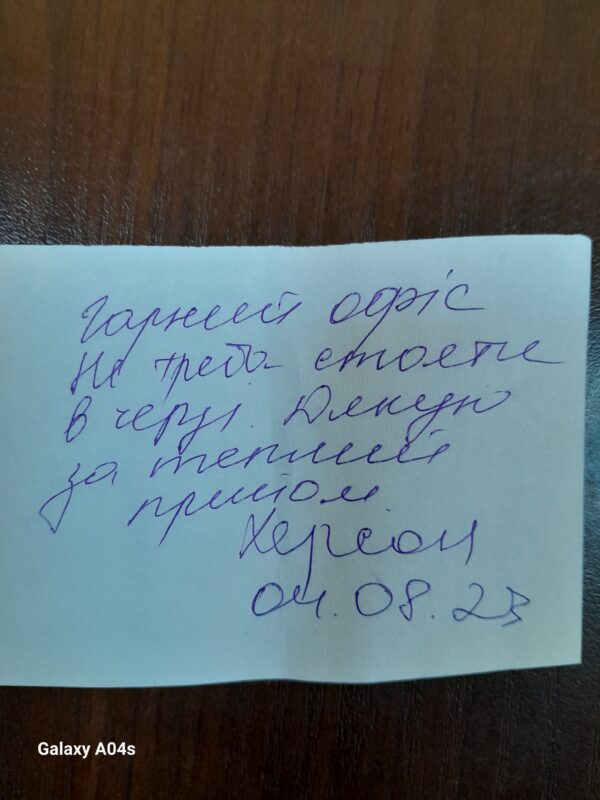 Гарний офіс
Не треба стояти
в черзі. Дякую
за теплий
прийом
Херсон
04.08.23
Galaxy A04s